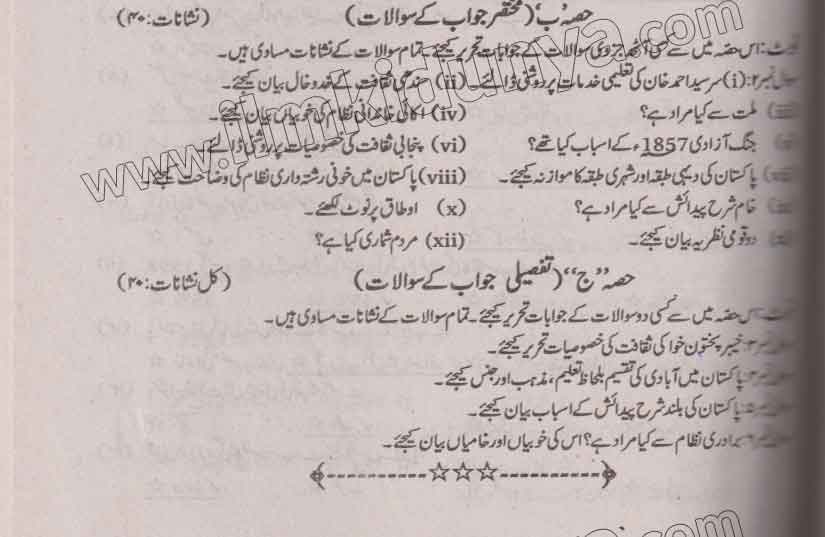 حصہ ’’ب‘‘ (مختصر جواب کے سوالات) (نشانات: ۴۰)
نوٹ: اس حصہ میں سے کسی آٹھ جزوی سوالات کے جوابات تحریر کیجئے۔ تمام سوالات کے نشانات مساوی ہیں۔
سوال نمبر ۲: (i) سرسید احمد خان کی تعلیمی خدمات پر روشنی ڈالئے۔ (ii) سندھی ثقافت کے خدوخال بیان کیجئے۔
(iii) ملت سے کیا مراد ہے؟ (iv) اکائی خاندانی نظام کی خوبیاں بیان کیجئے۔
(v) جنگ آزادی 1857ء کے اسباب کیا تھے؟ (vi) پنجابی ثقافت کی خصوصیات پر روشنی ڈالئے
(vii) پاکستان کی دیہی طبقہ اور شہری طبقہ کا موازنہ کیجئے۔ (viii) پاکستان میں خونی رشتہ داری نظام کی وضاحت کیجئے۔
(ix) خام شرح پیدائش سے کیا مراد ہے؟ (x) اوطاق پر نوٹ لکھئے۔
(xi) دو قومی نظریہ بیان کیجئے۔ (xii) مردم شماری کیا ہے؟
حصہ ’’ج‘‘ (تفصیلی جواب کے سوالات) (کل نشانات: ۴۰)
نوٹ: اس حصہ میں سے کسی دو سوالات کے جوابات تحریر کیجئے۔ تمام سوالات کے نشانات مساوی ہیں۔
سوال نمبر ۳: خیبر پختون خوا کی ثقافت کی خصوصیات تحریر کیجئے۔
سوال نمبر ۴: پاکستان میں آبادی کی تقسیم بلحاظ تعلیم، مذہب اور جنس کیجئے۔
سوال نمبر ۵: پاکستان کی بلند شرح پیدائش کے اسباب بیان کیجئے۔
سوال نمبر ۶: برادری نظام سے کیا مراد ہے؟ اس کی خوبیاں اور خامیاں بیان کیجئے۔
www.ilmkidunya.com